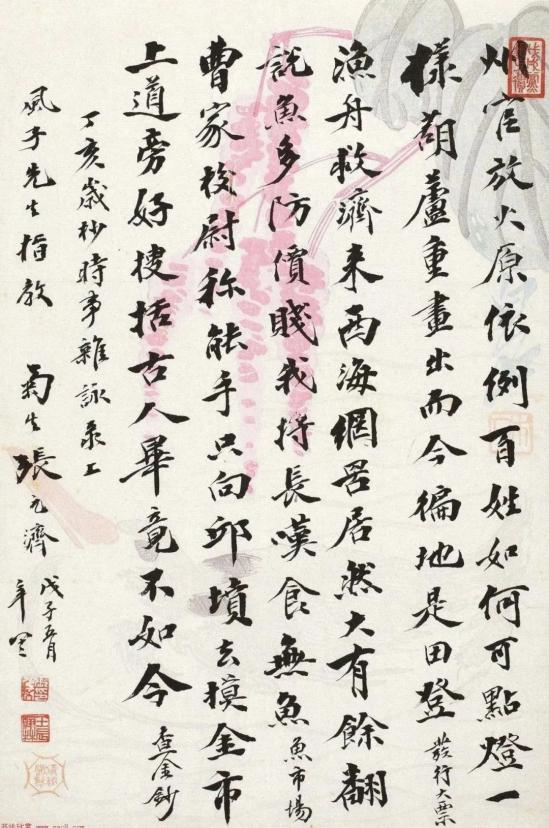 州官放火原依例百姓如何可點燈一
樣葫蘆重畫出而今徧地是田登發行大票
漁舟救濟來西海網罟居然大有餘翻
說魚多防價賤我將長嘆食無魚魚市場
曹家校尉稱能手只向邱墳去摸金市
上道旁好搜括古人畢竟不如今查金鈔
丁亥歲杪時事雜詠录工
風子先生指教
菊生張元濟
戊子五月
年